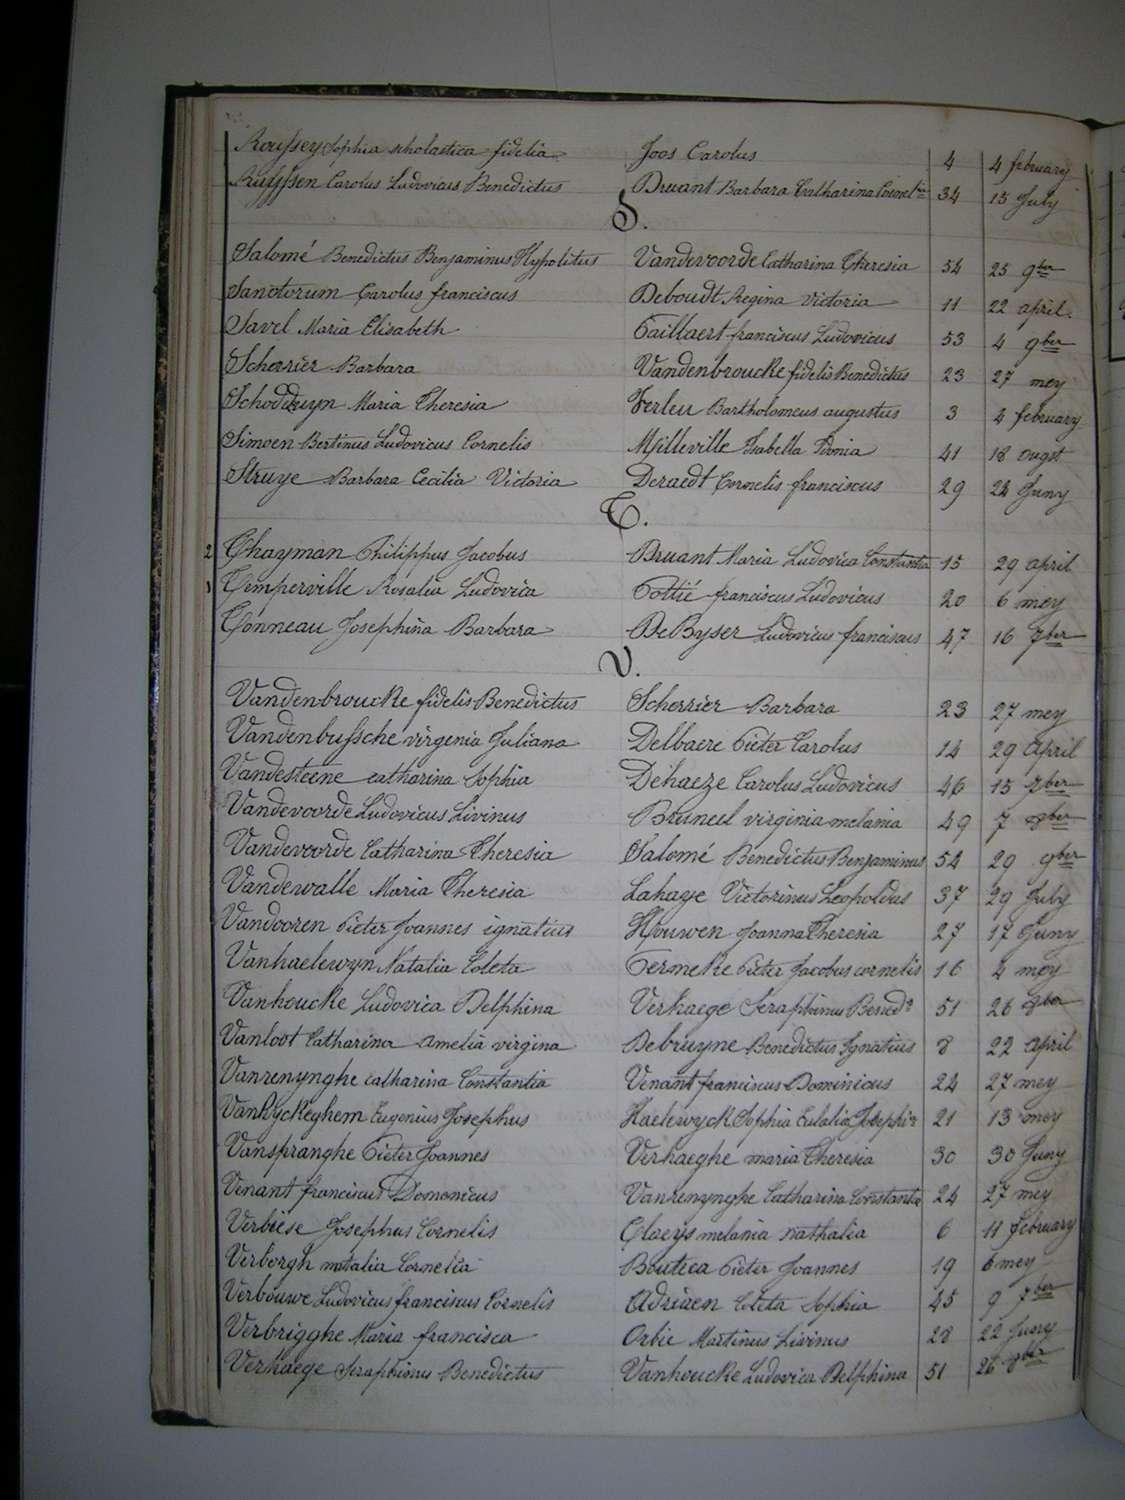 Roussey Sophia scholastica fidelia Joos Carolus 4 4 february
Ruyssen Carolus Ludovicus Benedictus Druant Barbara Catharina Cornel 34 15 July
S.
Salomé Benedictus Benjaminus Hypolitus Vandevoorde Catharina Theresia 54 25 9ber
Sanctorum Carolus franciscus Deboudt Regina Victoria 11 22 april.
Savel Maria Elisabeth Taillaert franciscus Ludovicus 53 4 9ber
Scherrier Barbara Vandenbroucke fidelis Benedictus 23 27 mey
Schodduyn Maria Theresia Verleu Bartholomeus augustus 3 4 february
Simoen Bertinus Ludovicus Cornelis Milleville Isabella Idonia 41 18 ougst
Struye Barbara Cecilia Victoria Deraedt Cornelis franciscus 29 24 Juny
T.
2 Thayman Philippus Jacobus Druant Maria Ludovica Constantia 15 29 april
1 Temperville Rosalia Ludovica Pottié franciscus Ludovicus 20 6 mey
Tonneau Josephina Barbara DeByser Ludovicus franciscus 47 16 7ber
V.
Vandenbroucke fidelis Benedictus Scherrier Barbara 23 27 mey
Vandenbussche virgenia Juliana Delbaere Pieter Carolus 14 29 April
Vandesteene catharina Sophia Dehaeze Carolus Ludovicus 46 15 7ber
Vandevoorde Ludovicus Livinus Bruneel virginia melania 49 7 8ber
Vandevoorde Catharina Theresia Salomé Benedictus Benjaminus 54 29 9ber
Vandewalle Maria Theresia Lahaye Victorinus Leopoldus 37 29 July
Vandooren Pieter Joannes ignatius Houwen Joanna Theresia 27 17 Juny
Vanhaelewyn Natalia Coleta Termeke Pieter Jacobus cornelis 16 4 mey
Vanhoucke Ludovica Delphina Verhaege Seraphinus Bened 51 26 8ber
Vanloot Catharina Amelia virgina Debruyne Benedictus Ignatius 8 22 april
Vanrenynghe catharina Constantia Venant franciscus Dominicus 24 27 mey
VanRyckeghem Eugenius Josephus Haelewyck Sophia Eulalia Josephi 21 13 mey
Vanspranghe Pieter Joannes Verhaeghe maria Theresia 30 30 Juny
Venant franciscus Domonicus Vanrenynghe Catharina Constantia 24 27 mey
Verbiese Josephus Cornelis Claeys melania nathalia 6 11 february
Verborgh natalia Cornelia Boutica Pieter Joannes 19 6 mey
Verbouwe Ludovicus franciscus Cornelis Adriaen Coleta Sophia 45 9 7ber
Verbrigghe Maria francisca Orbie Martinus Livinus 28 22 Juny
Verhaege Seraphinus Benedictus Vanhoucke Ludovica Delphina 51 26 8ber